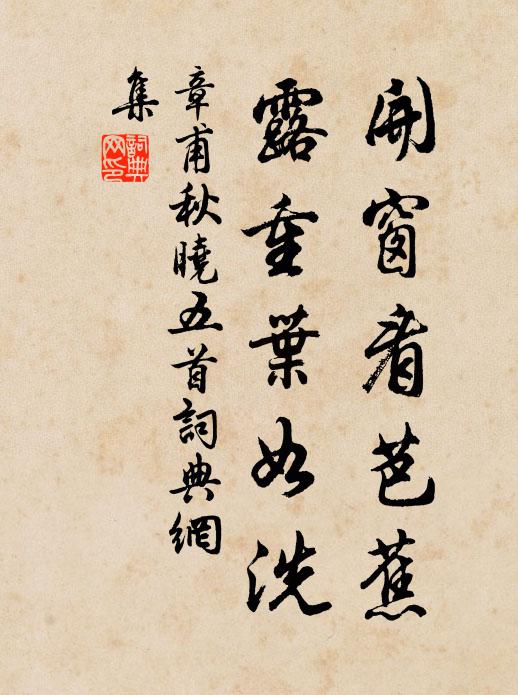 開窗看芭蕉
露重葉如洗
章甫秋曉五首詞典網
集
詞典
网印